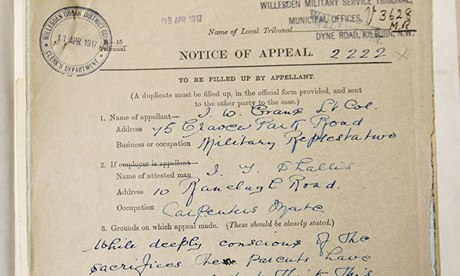 WILLESDEN URBAN DISTRICT COUNCIL
11 APR. 1917
CLERK'S DEPARTMENT
19 APR. 1917
WILLESDEN MILITARY SERVICE TRIBUNAL,
MUNICIPAL OFFICES,
DYNE ROAD, KILBURN, N.W.
3628
M.R
-15
Tribunal
Name of Local Tribunal
NOTICE OF APPEAL. 2222 X
TO BE FILLED UP BY APPELLANT.
(A duplicate must be filled up, in the official form provided, and sent
to the other party to the case.)
1. Name of appellant— J. W. Lt Col.
Address 45 Craven Park Road
Business or occupation Military Representative
2. If employer is appellant—
Name of attested man J. Y. Shallis
Address 10 Ranelagh Road.
Occupation Carpenters Mate
3. Grounds on which appeal made. (These should be clearly stated.)
While deeply conscious of the
sacrifices the Parents have